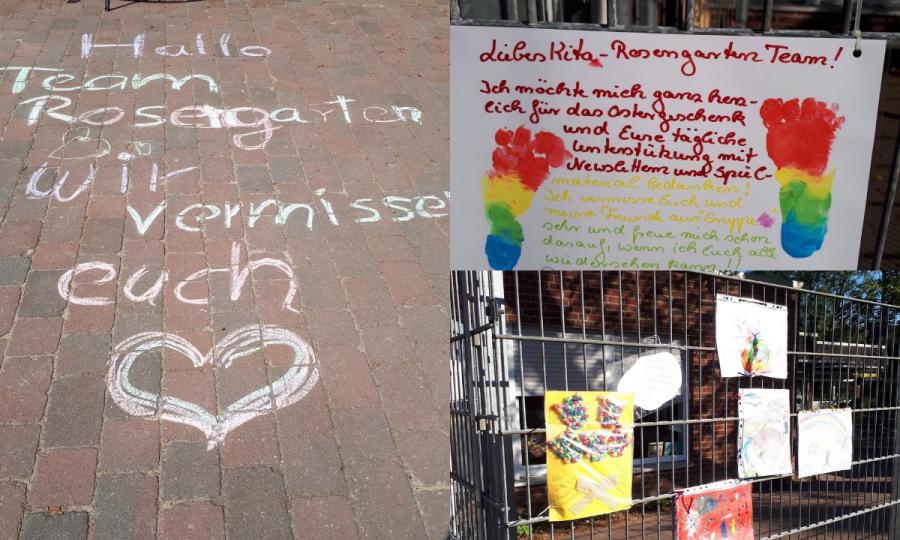 Hallo
Team
Rosengarten
wir
vermisse
euch
Liebes Kita-Rosengarten Team!
Ich möchte mich ganz herz-
lich für das Ostergeschenk
und Eure tägliche
unterstützung mit
Newslettern und Spiel-
material bedanken!
Ich vermisse Euch und
meine Freunde aus "Gruppe
sehr und freue mich schon
darauf, wenn ich Euch alle
wiedersehen kann!!